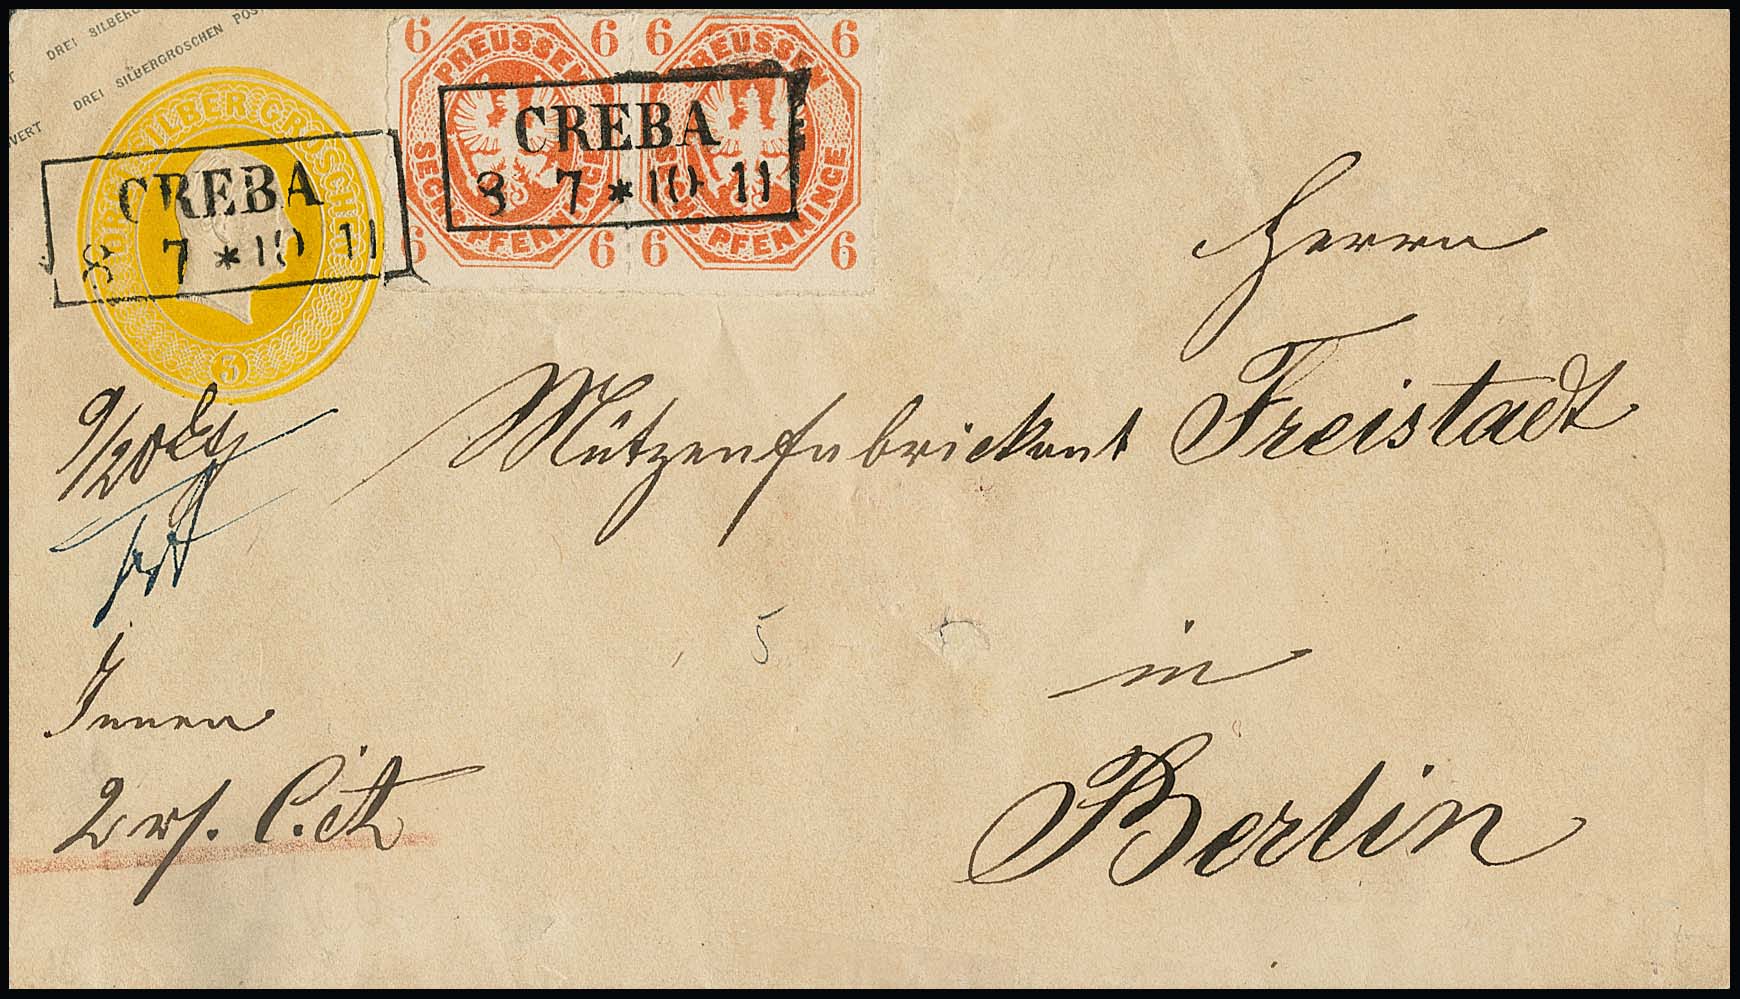 DREI SILBERG
DREI SILBERGROSCHEN POST
VERT
SILBER GROSCHEN
3
6 6 6 6
PREUSSEN PREUSSEN
SECHS PFENNINGE SECHS PFENNINGE
6 6 6 6
CREBA
8 7 * 10 11
CREBA
8 7 * 10 11
Herrn
Mützenfabrickant Freistadt
in
Berlin
9/20
Innen
5